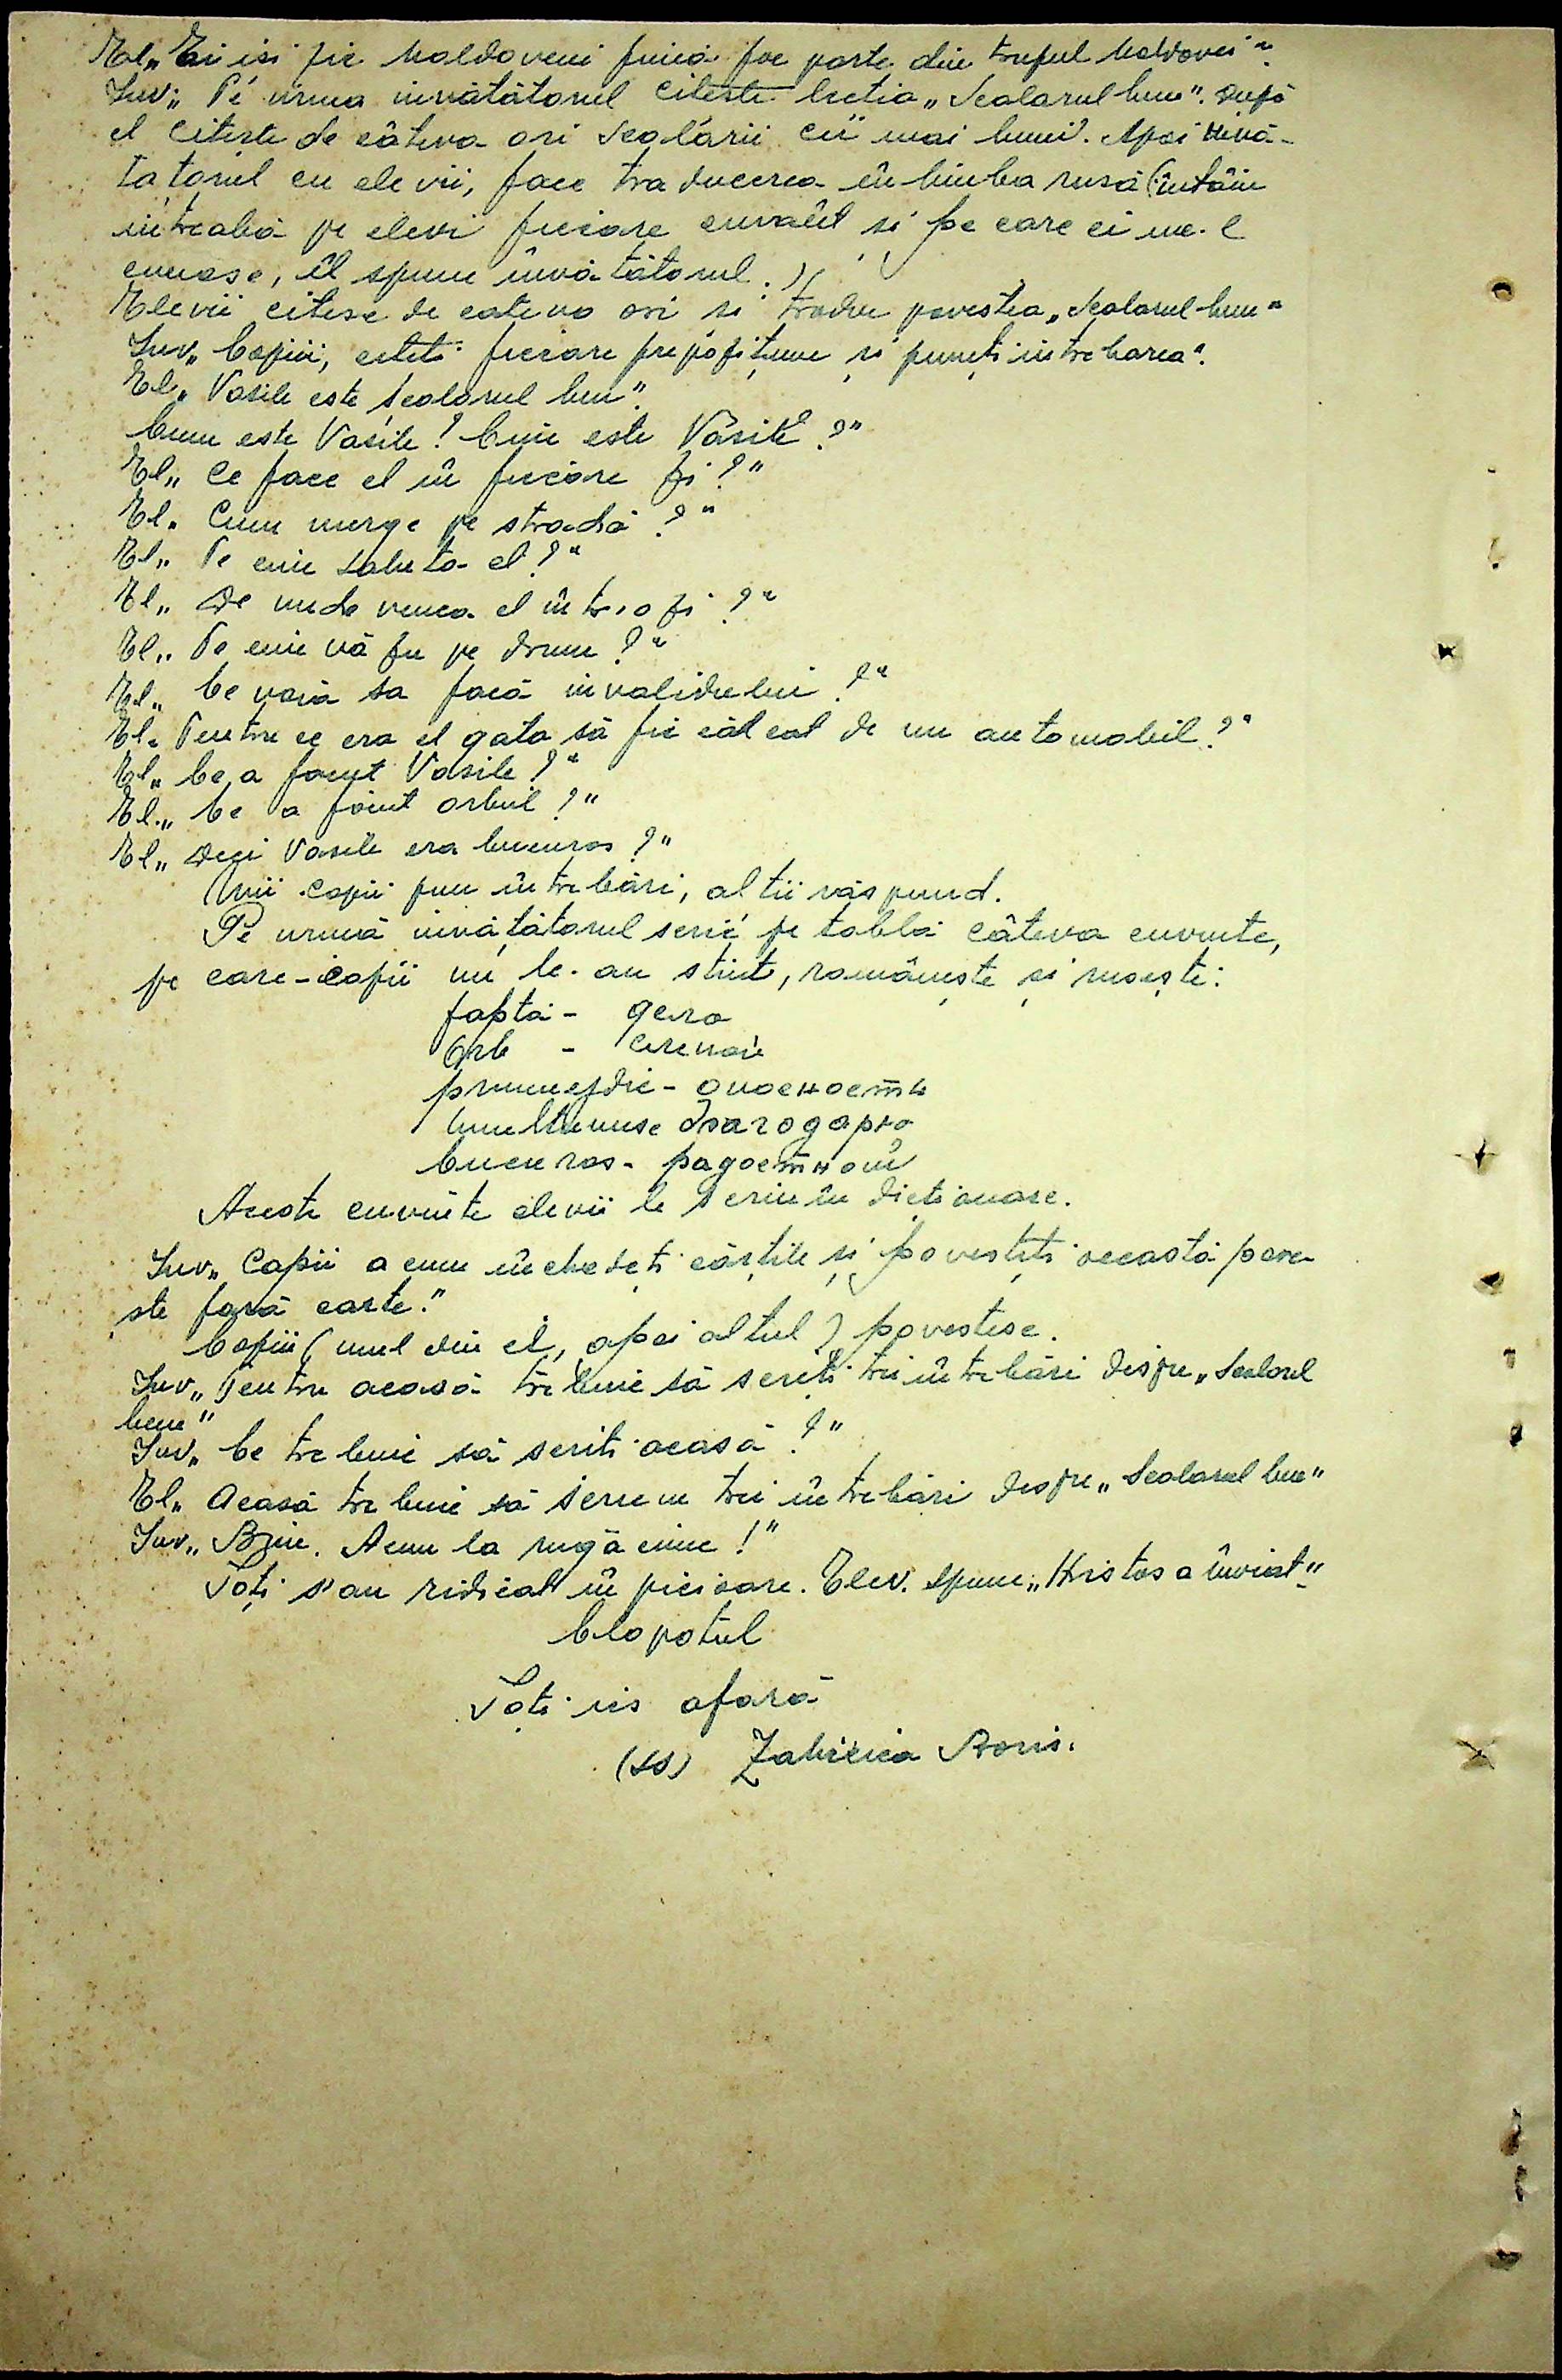 El„ Ei isi zic Moldoveni fiincă fac parte din trupul Moldovei"
Inv„ Pe urma invătătorul citeste lectia „Scolarul bun". După
el citeste de câteva ori scolarii cii mai buni. Apoi invă-
tațorul cu elevii, face traducerea în limba rusă (întâiu
intreabă pe elevi fiecare cuvânt si pe care ei nu-l
cunosc, îl spune învătătorul.)
Elevii citesc de cateva ori si traduc povestea „Scolarul bun"
Inv„ Copiii, citiți fiecare prepozițiune și puneți intrebarea".
El„ Vasile este școlarul bun".
Cum este Vasile? Cine este Vasile?"
El„ Ce face el în fiecare zi?"
El„ Cum merge pe stradă?"
El„ Pe cine saluta el?"
El„ De unde venea el într-o zi?"
El„ Pe cine văzu pe drum?"
El„ Ce voia sa facă invalidului?"
El„ Pentru ce era el gata să fie călcat de un automobil?"
El„ Ce a facut Vasile?"
El„ Ce a făcut orbul?"
El„ Deci Vasile era bucuros?"
Unii copii pun întrebări, altii răspund.
Pe urmă invățătorul scrie pe tablă câteva cuvinte,
pe care copii nu le-au stiut, românește și rusește:
fapta - дело
Orb - слепой
primejdie - опосность
multumesc благодарю
bucuros - радостной
Aceste cuvinte elevii le scriu în dicționare.
Inv„ Copii acum închideți cărțile și povestiți această pove-
ste fară carte."
Copiii (unul din ei, apoi altul) povestesc.
Inv„ Pentru acasă trebuie să scriți trei întrebări despre „Scolarul
bun"
Inv„ Ce trebuie să scriti acasă?"
El„ Acasă trebuie să scriem trei întrebări despre „Scolarul bun"
Inv„ Bine. Acum la rugăciune!"
Toți s'au ridicat în picioare. Elev. spune „Hristos a înviat"
Clopotul
Toți ies afară
(ss) Boris.